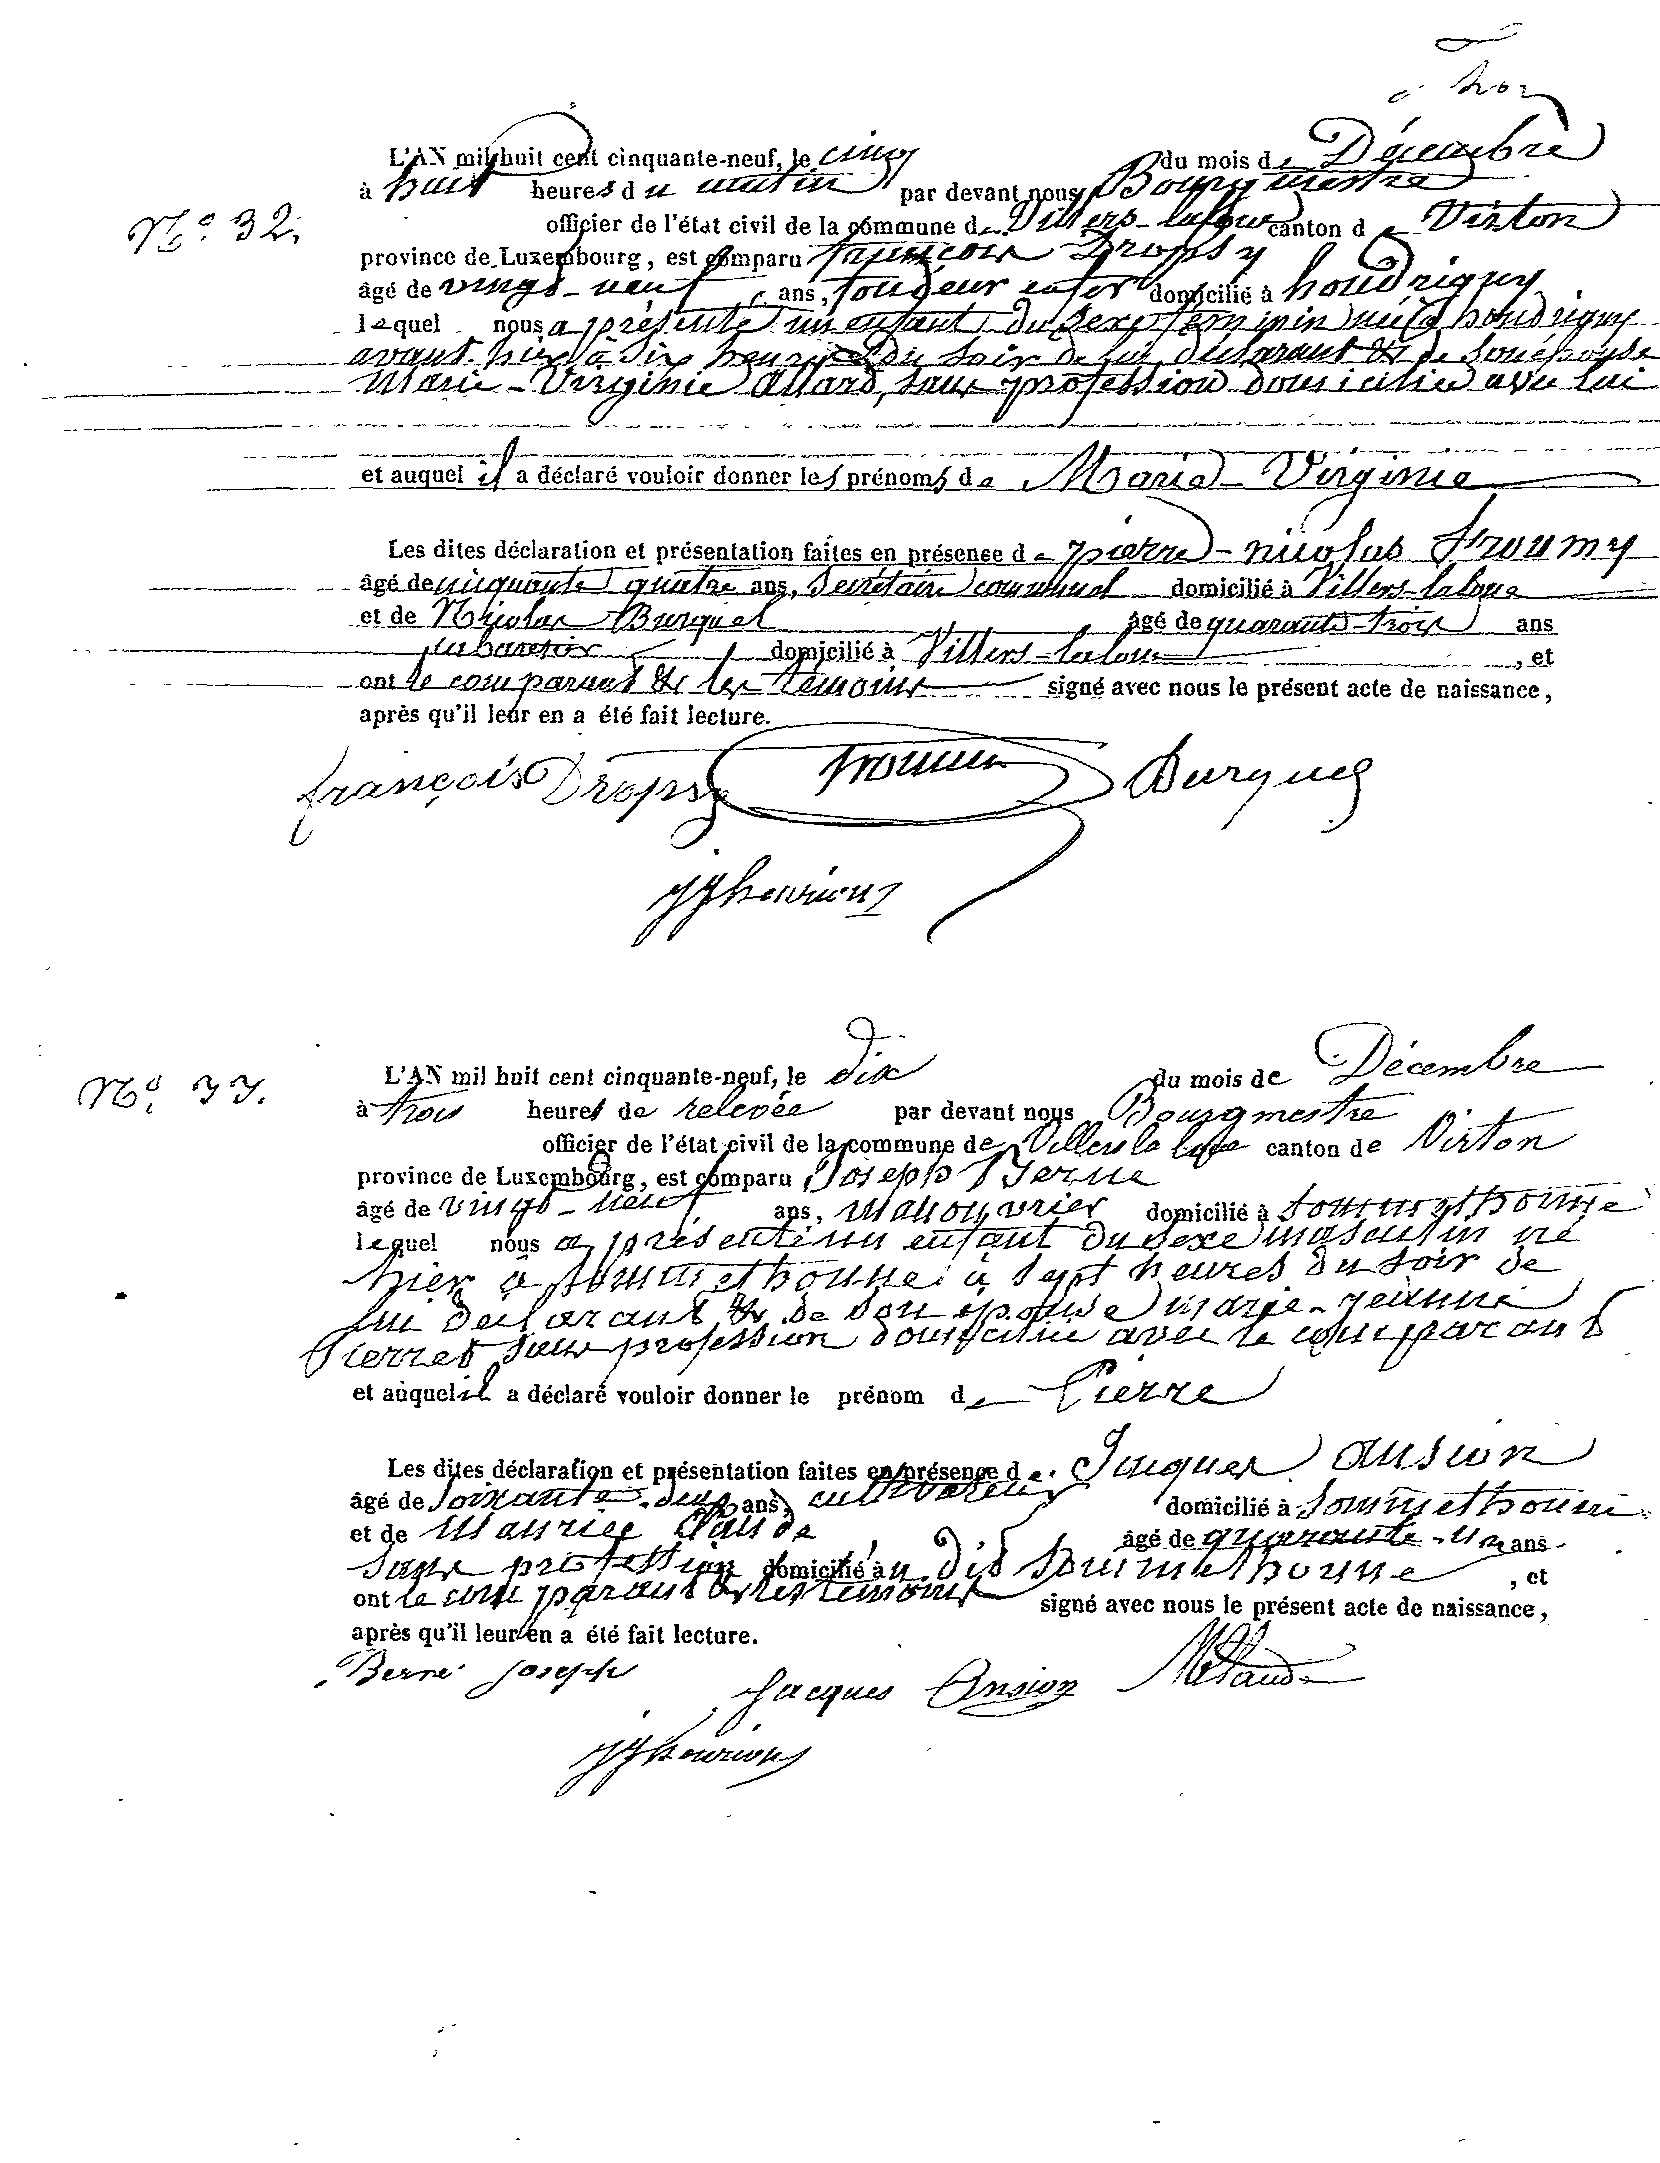 L'AN mil huit cent cinquante-neuf, le cinq du mois de Décembre
à huit heures du matin par devant nous Bourgmestre
N.º 32. officier de l'état civil de la commune de Villers-laloue canton de Virton
province de Luxembourg, est comparu françois Dropsy
âgé de vingt-neuf ans, fondeur domicilié à houdrigny
lequel nous a présenté un enfant du sexe féminin né à houdrigny
avant-hier à six heures du soir de lui déclarant & de son épouse
Marie-Virginie Allard, sans profession domiciliée avec lui
et auquel il a déclaré vouloir donner les prénoms de Maria-Virginie
Les dites déclaration et présentation faites en présence de pierre-nicolas froumy
âgé de cinquante quatre ans, Secrétaire communal domicilié à Villers-laloue
et de Nicolas Burquel âgé de quarante-trois ans
cabaretier domicilié à Villers-laloue , et
ont le comparant & les témoins signé avec nous le présent acte de naissance,
après qu'il leur en a été fait lecture.
françois Dropsy froumy Burquel
N.º 33. L'AN mil huit cent cinquante-neuf, le dix du mois de Décembre
à trois heures de relevée par devant nous Bourgmestre
officier de l'état civil de la commune de Villers la loue canton de Virton
province de Luxembourg, est comparu Joseph Berne
âgé de vingt-neuf ans, manouvrier domicilié à Sommethonne
lequel nous a présenté un enfant du sexe masculin né
hier à Sommethonne à sept heures du soir de
lui déclarant & de son épouse marie-jeanne
Pierret sans profession domiciliée avec le comparant
et auquel il a déclaré vouloir donner le prénom de Pierre
Les dites déclaration et présentation faites en présence de Jacques ansion
âgé de Soixante-deux ans, cultivateur domicilié à Sommethonne
et de Maurice Claude âgé de quarante-un ans
sans profession domicilié à u dit Sommethonne , et
ont le comparant & les témoins signé avec nous le présent acte de naissance,
après qu'il leur en a été fait lecture.
Berne Joseph Jacques Ansion MClaude